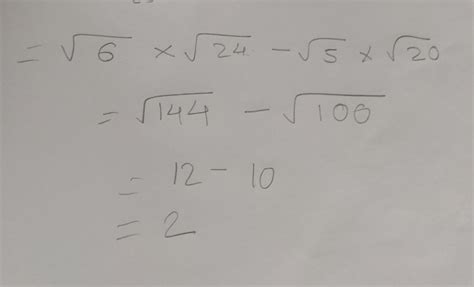 = √6 × √24 - √5 × √20
= √144 - √100
= 12 - 10
= 2